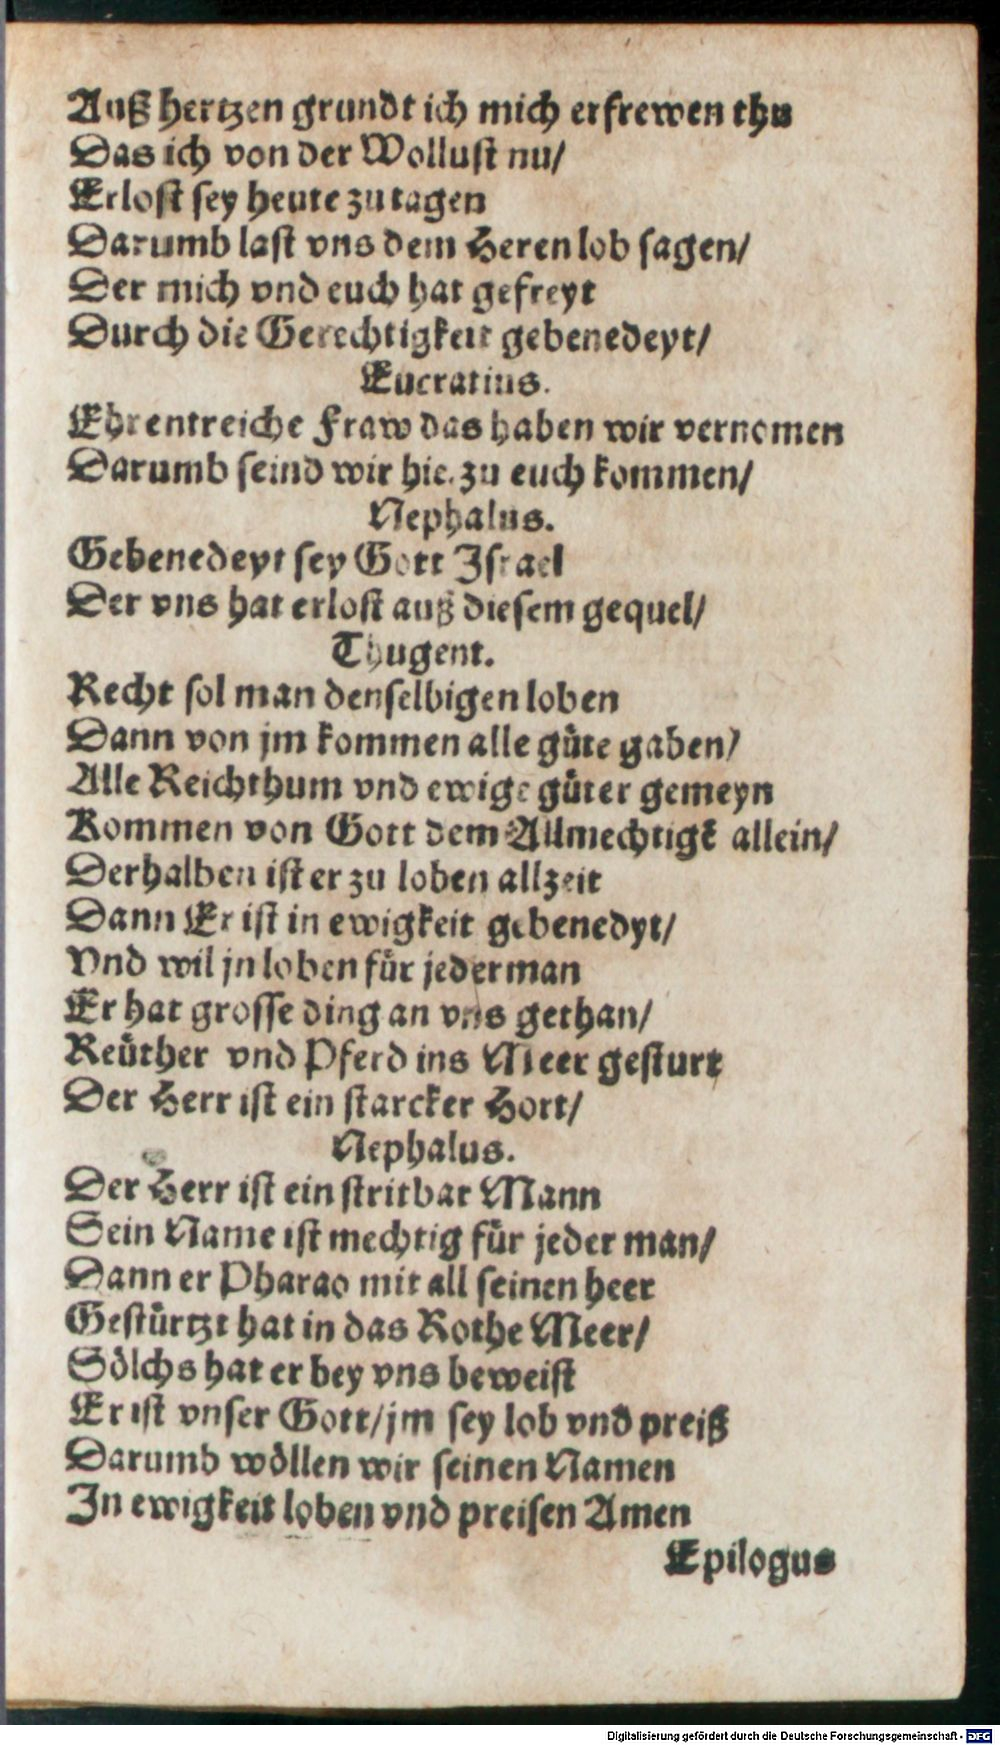 Auß hertzen grundt ich mich erfrewen thu
Das ich von der Wollust nu/
Erlost sey heute zu tagen
Darumb last vns dem Heren lob sagen/
Der mich vnd euch hat gefreyt
Durch die Gerechtigkeit gebenedeyt/
Eucratius.
Ehrentreiche Fraw das haben wir vernomen
Darumb seind wir hie. zu euch kommen/
Nephalus.
Gebenedeyt sey Gott Israel
Der vns hat erlost auß diesem gequel/
Thugent.
Recht sol man denselbigen loben
Dann von jm kommen alle güte gaben/
Alle Reichthum vnd ewige güter gemeyn
Kommen von Gott dem Allmechtigē allein/
Derhalben ist er zu loben allzeit
Dann Er ist in ewigkeit gebenedyt/
Vnd wil jn loben für jederman
Er hat grosse ding an vns gethan/
Reüther vnd Pferd ins Meer gesturt
Der Herr ist ein starcker Hort/
Nephalus.
Der Herr ist ein stritbar Mann
Sein Name ist mechtig für jeder man/
Dann er Pharao mit all seinen heer
Gestürtzt hat in das Rothe Meer/
Sölchs hat er bey vns beweist
Er ist vnser Gott/jm sey lob vnd preiß
Darumb wöllen wir seinen Namen
In ewigkeit loben vnd preisen Amen
Epilogus
Digitalisierung gefördert durch die Deutsche Forschungsgemeinschaft - DFG